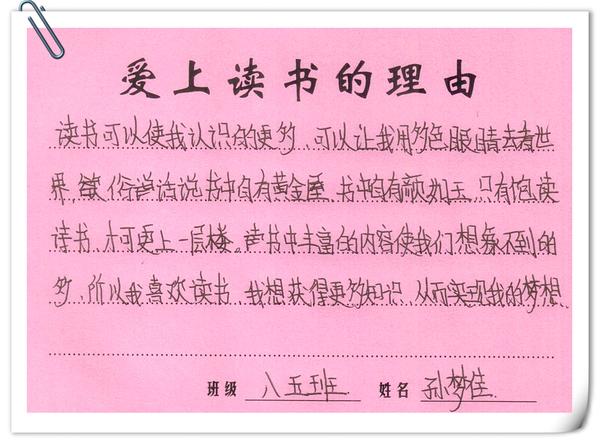 爱上读书的理由
读书可以使我认识的更多、可以让我用多色眼睛去看世
界,俗话说书中自有黄金屋、书中自有颜如玉、只有饱读
诗书、才可更上一层楼。书中丰富的内容使我们想象不到的
多、所以我喜欢读书、我想获得更多知识、从而实现我的梦想、
班级 八五班 姓名 孙梦佳